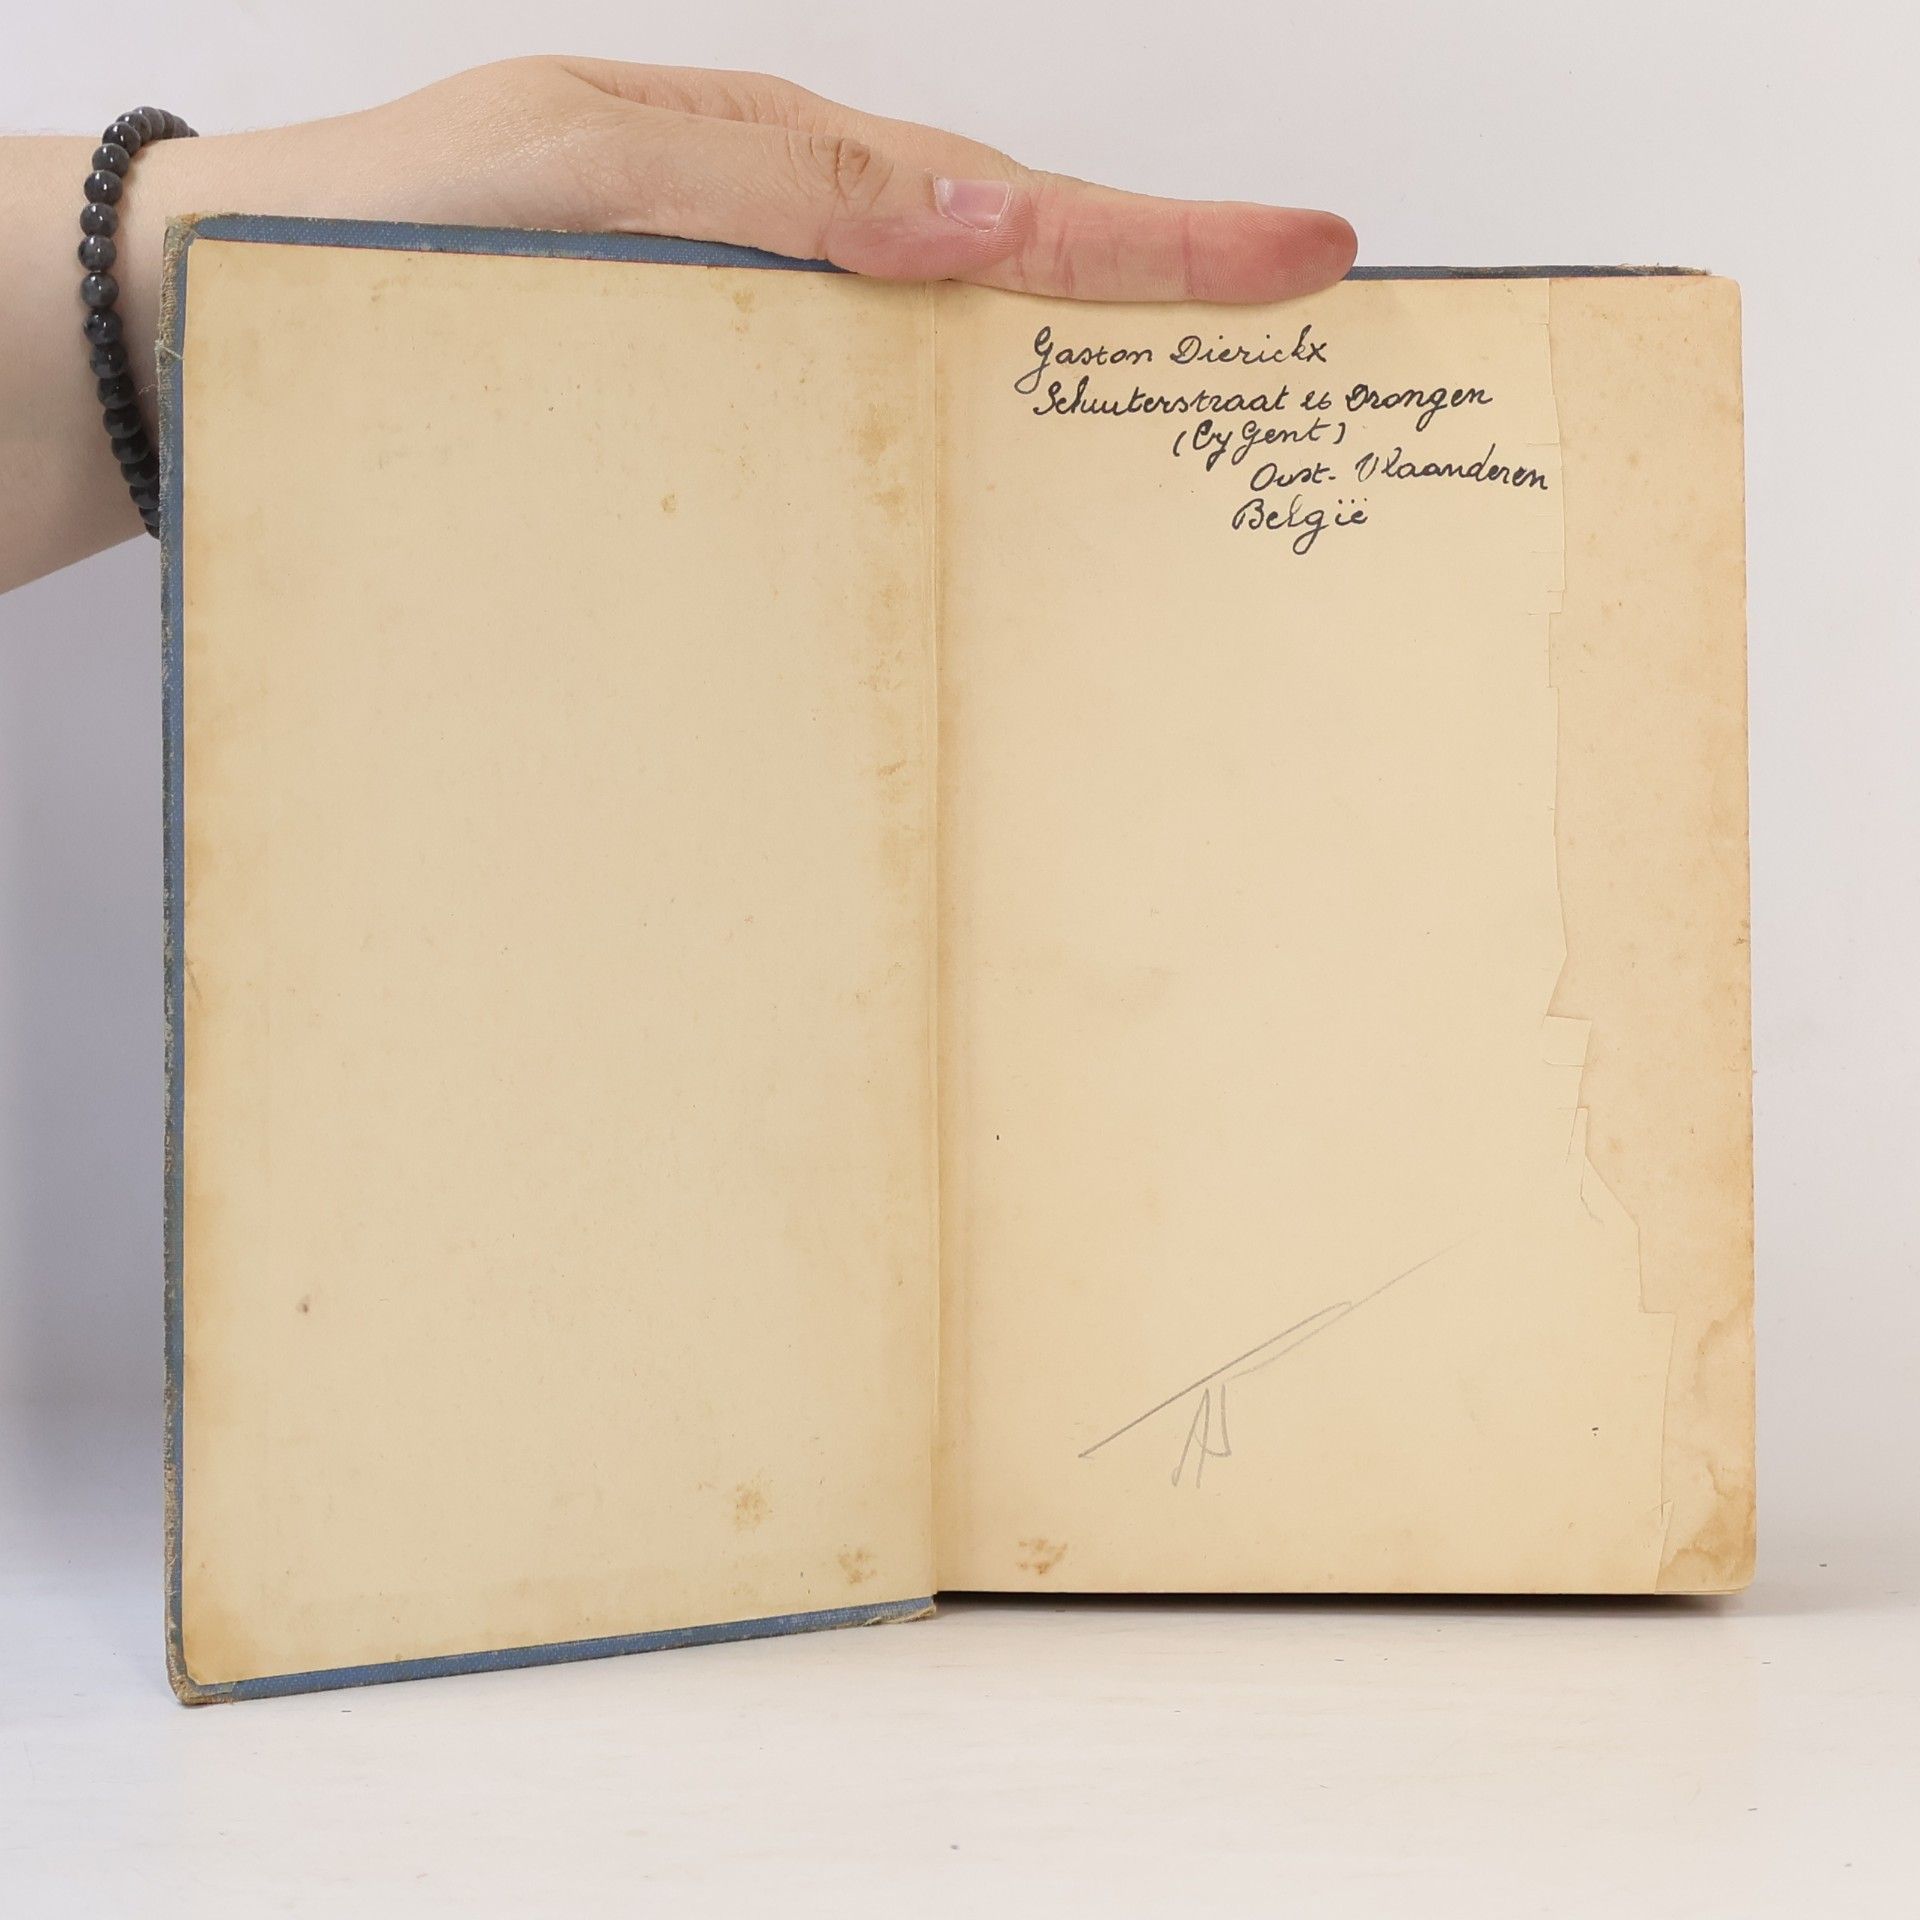 Gaston Dierickx
Schuuterstraat 26 Drongen
(By Gent)
Oost-Vlaanderen
België